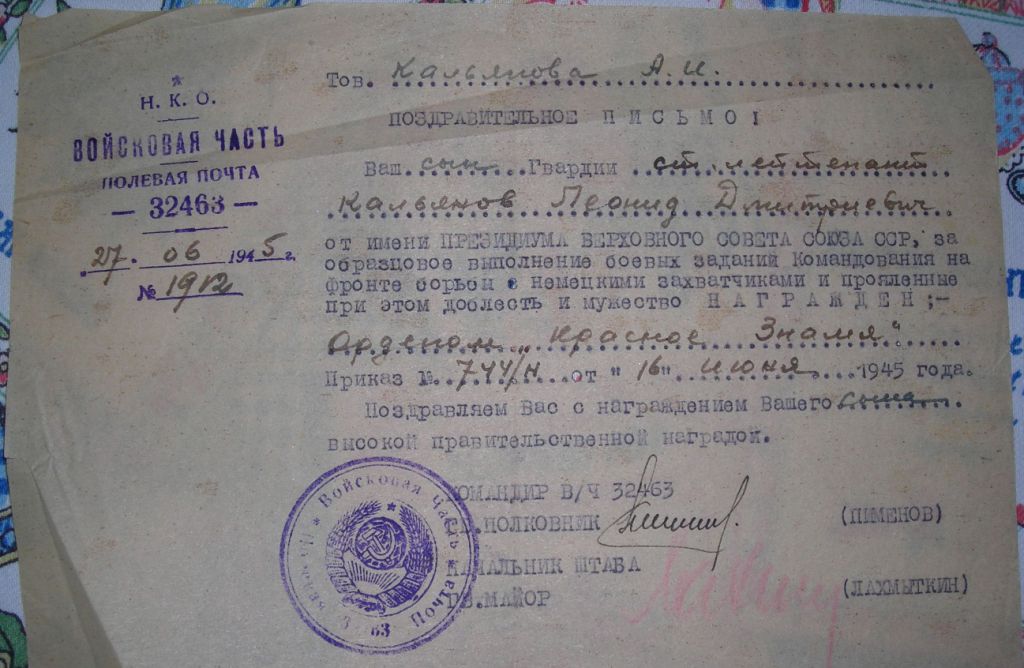 Н. К. О.
ВОЙСКОВАЯ ЧАСТЬ
ПОЛЕВАЯ ПОЧТА
— 32463 —
27. 06 1945 г.
№ 1912
Тов. Кальянова А.И.
ПОЗДРАВИТЕЛЬНОЕ ПИСЬМО!
Ваш сын Гвардии ст. лейтенант
Кальянов Леонид Дмитриевич
от имени ПРЕЗИДИУМА ВЕРХОВНОГО СОВЕТА СОЮЗА ССР, за
образцовое выполнение боевых заданий Командования на
фронте борьбы с немецкими захватчиками и прояленные
при этом доблесть и мужество НАГРАЖДЕН;-
Орденом „Красное Знамя".
Приказ №. 744/н от "16" июня 1945 года.
Поздравляем Вас с награждением Вашего сына
высокой правительственной наградой.
КОМАНДИР В/Ч 32463
ГВ.ПОЛКОВНИК (ПИМЕНОВ)
НАЧАЛЬНИК ШТАБА
ГВ.МАЙОР (ЛАХМЫТКИН)
Войсковая часть
Почта
63